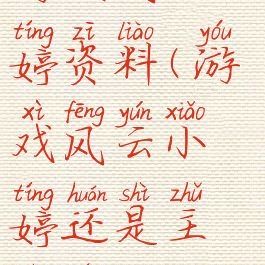 tíng zī liào yóu
婷资料(游
xì fēng yún xiǎo
戏风云小
tíng huán shì zhǔ
婷还是主